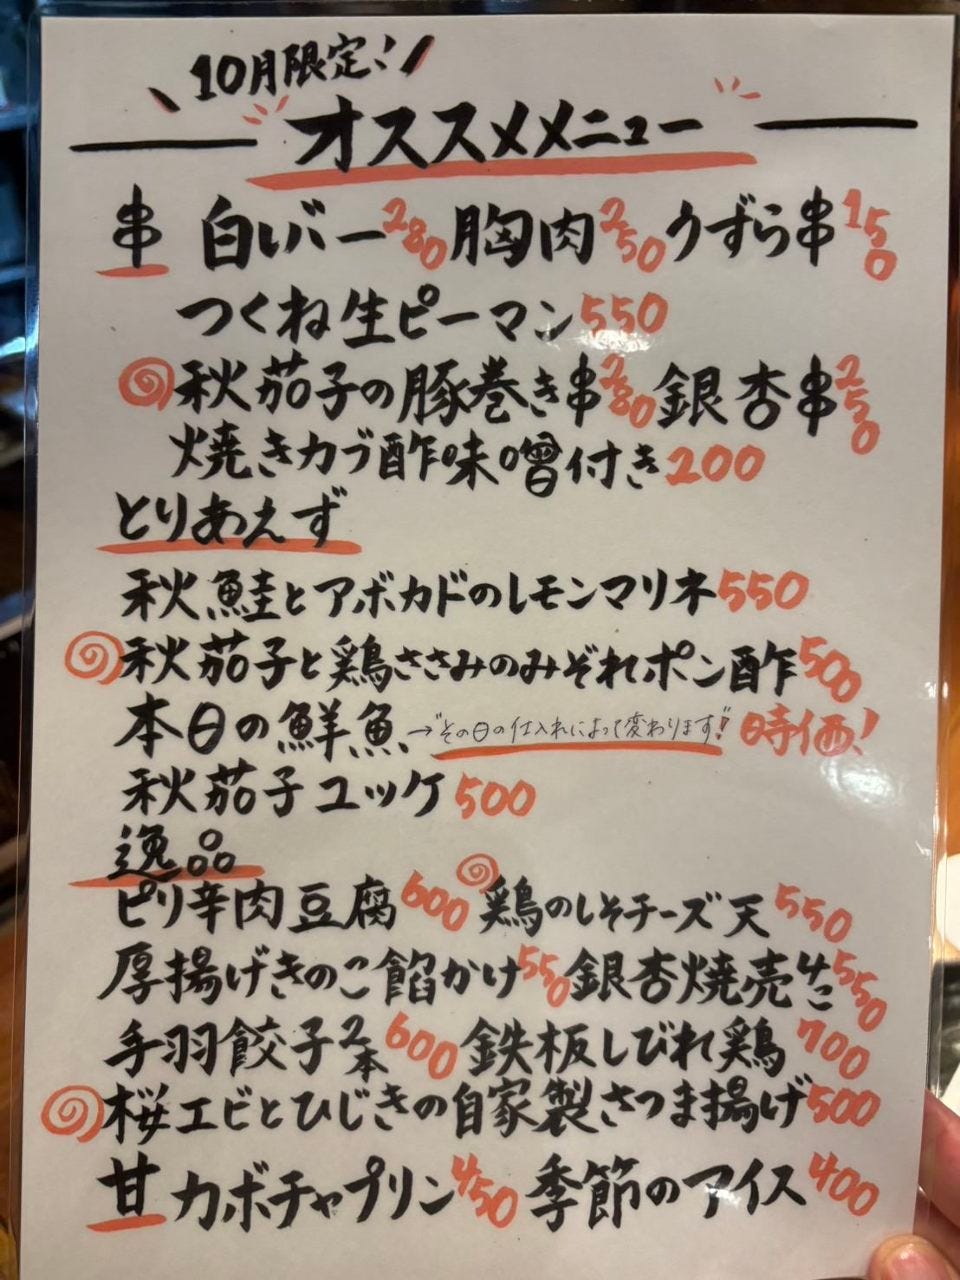 10月限定!
オススメメニュー
串 白レバー280 胸肉250 うずら串150
つくね生ピーマン550
秋茄子の豚巻き串280 銀杏串250
焼きカブ酢味噌付き200
とりあえず
秋鮭とアボカドのレモンマリネ550
秋茄子と鶏ささみのみぞれポン酢500
本日の鮮魚→"その日の仕入れによって変わります"! 時価!
秋茄子ユッケ500
逸品
ピリ辛肉豆腐600 鶏のしそチーズ天550
厚揚げきのこ餡かけ550 銀杏焼売4こ550
手羽餃子2本600 鉄板しびれ鶏700
桜エビとひじきの自家製さつま揚げ500
甘 カボチャプリン450 季節のアイス400